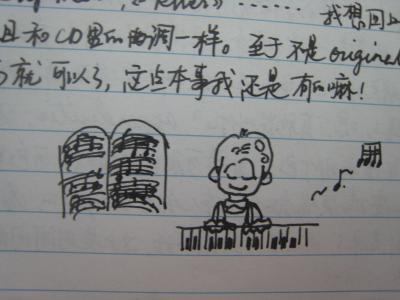 …… 我想回
且和CD里的曲调一样。至于不是original
就可以了，这点本事我还是有的嘛！